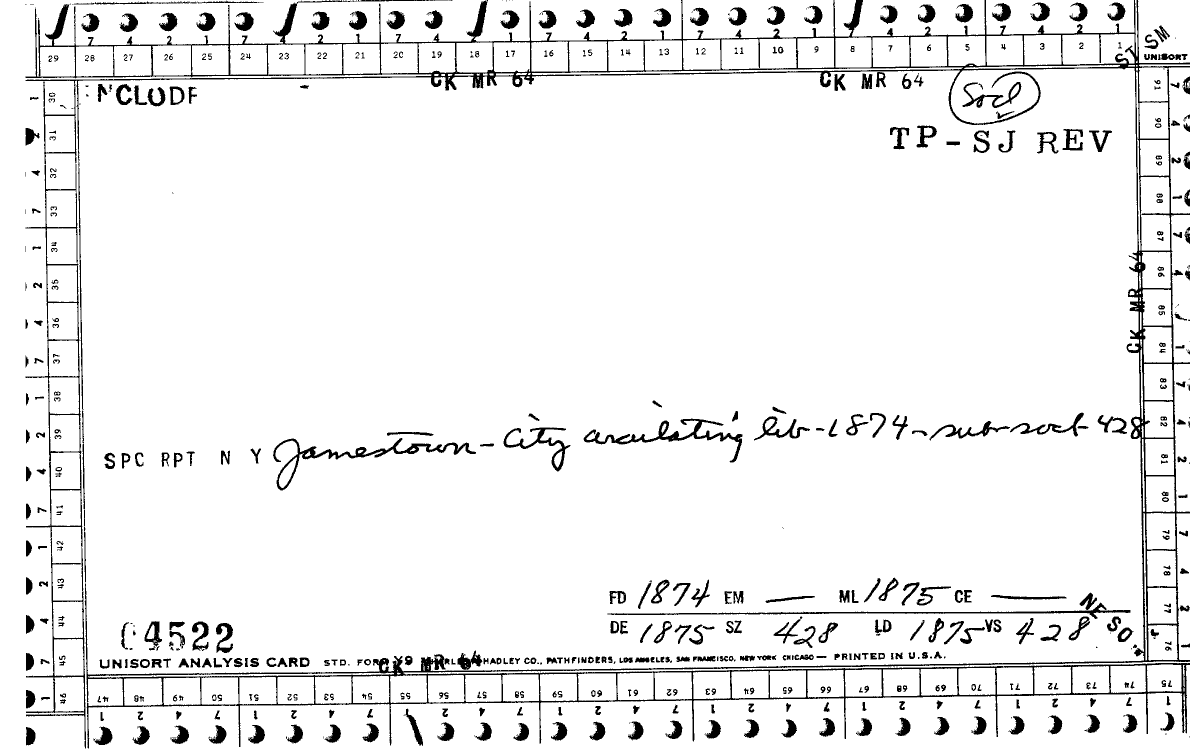 7 4 2 1 7 4 2 1 7 4 2 1 7 4 2 1 7 4 2 1 7 4 2 1
29 28 27 26 25 24 23 22 21 20 19 18 17 16 15 14 13 12 11 10 9 8 7 6 5 4 3 2 1
ST SM
UNISORT
CK MR 64 CK MR 64
NCLUDE
Socl
TP-SJ REV
CK MR 64
SPC RPT N Y Jamestown-City circulating lib-1874-sub-socl-428
FD 1874 EM — ML 1875 CE —
DE 1875 SZ 428 LD 1875 VS 428
NE SO
04522
UNISORT ANALYSIS CARD STD. FORM Y9 HADLEY CO., PATHFINDERS, LOS ANGELES, SAN FRANCISCO, NEW YORK CHICAGO — PRINTED IN U.S.A.
CK MR 64
30 31 32 33 34 35 36 37 38 39 40 41 42 43 44 45 46
47 48 49 50 51 52 53 54 55 56 57 58 59 60 61 62 63 64 65 66 67 68 69 70 71 72 73 74 75
76 77 78 79 80 81 82 83 84 85 86 87 88 89 90 91